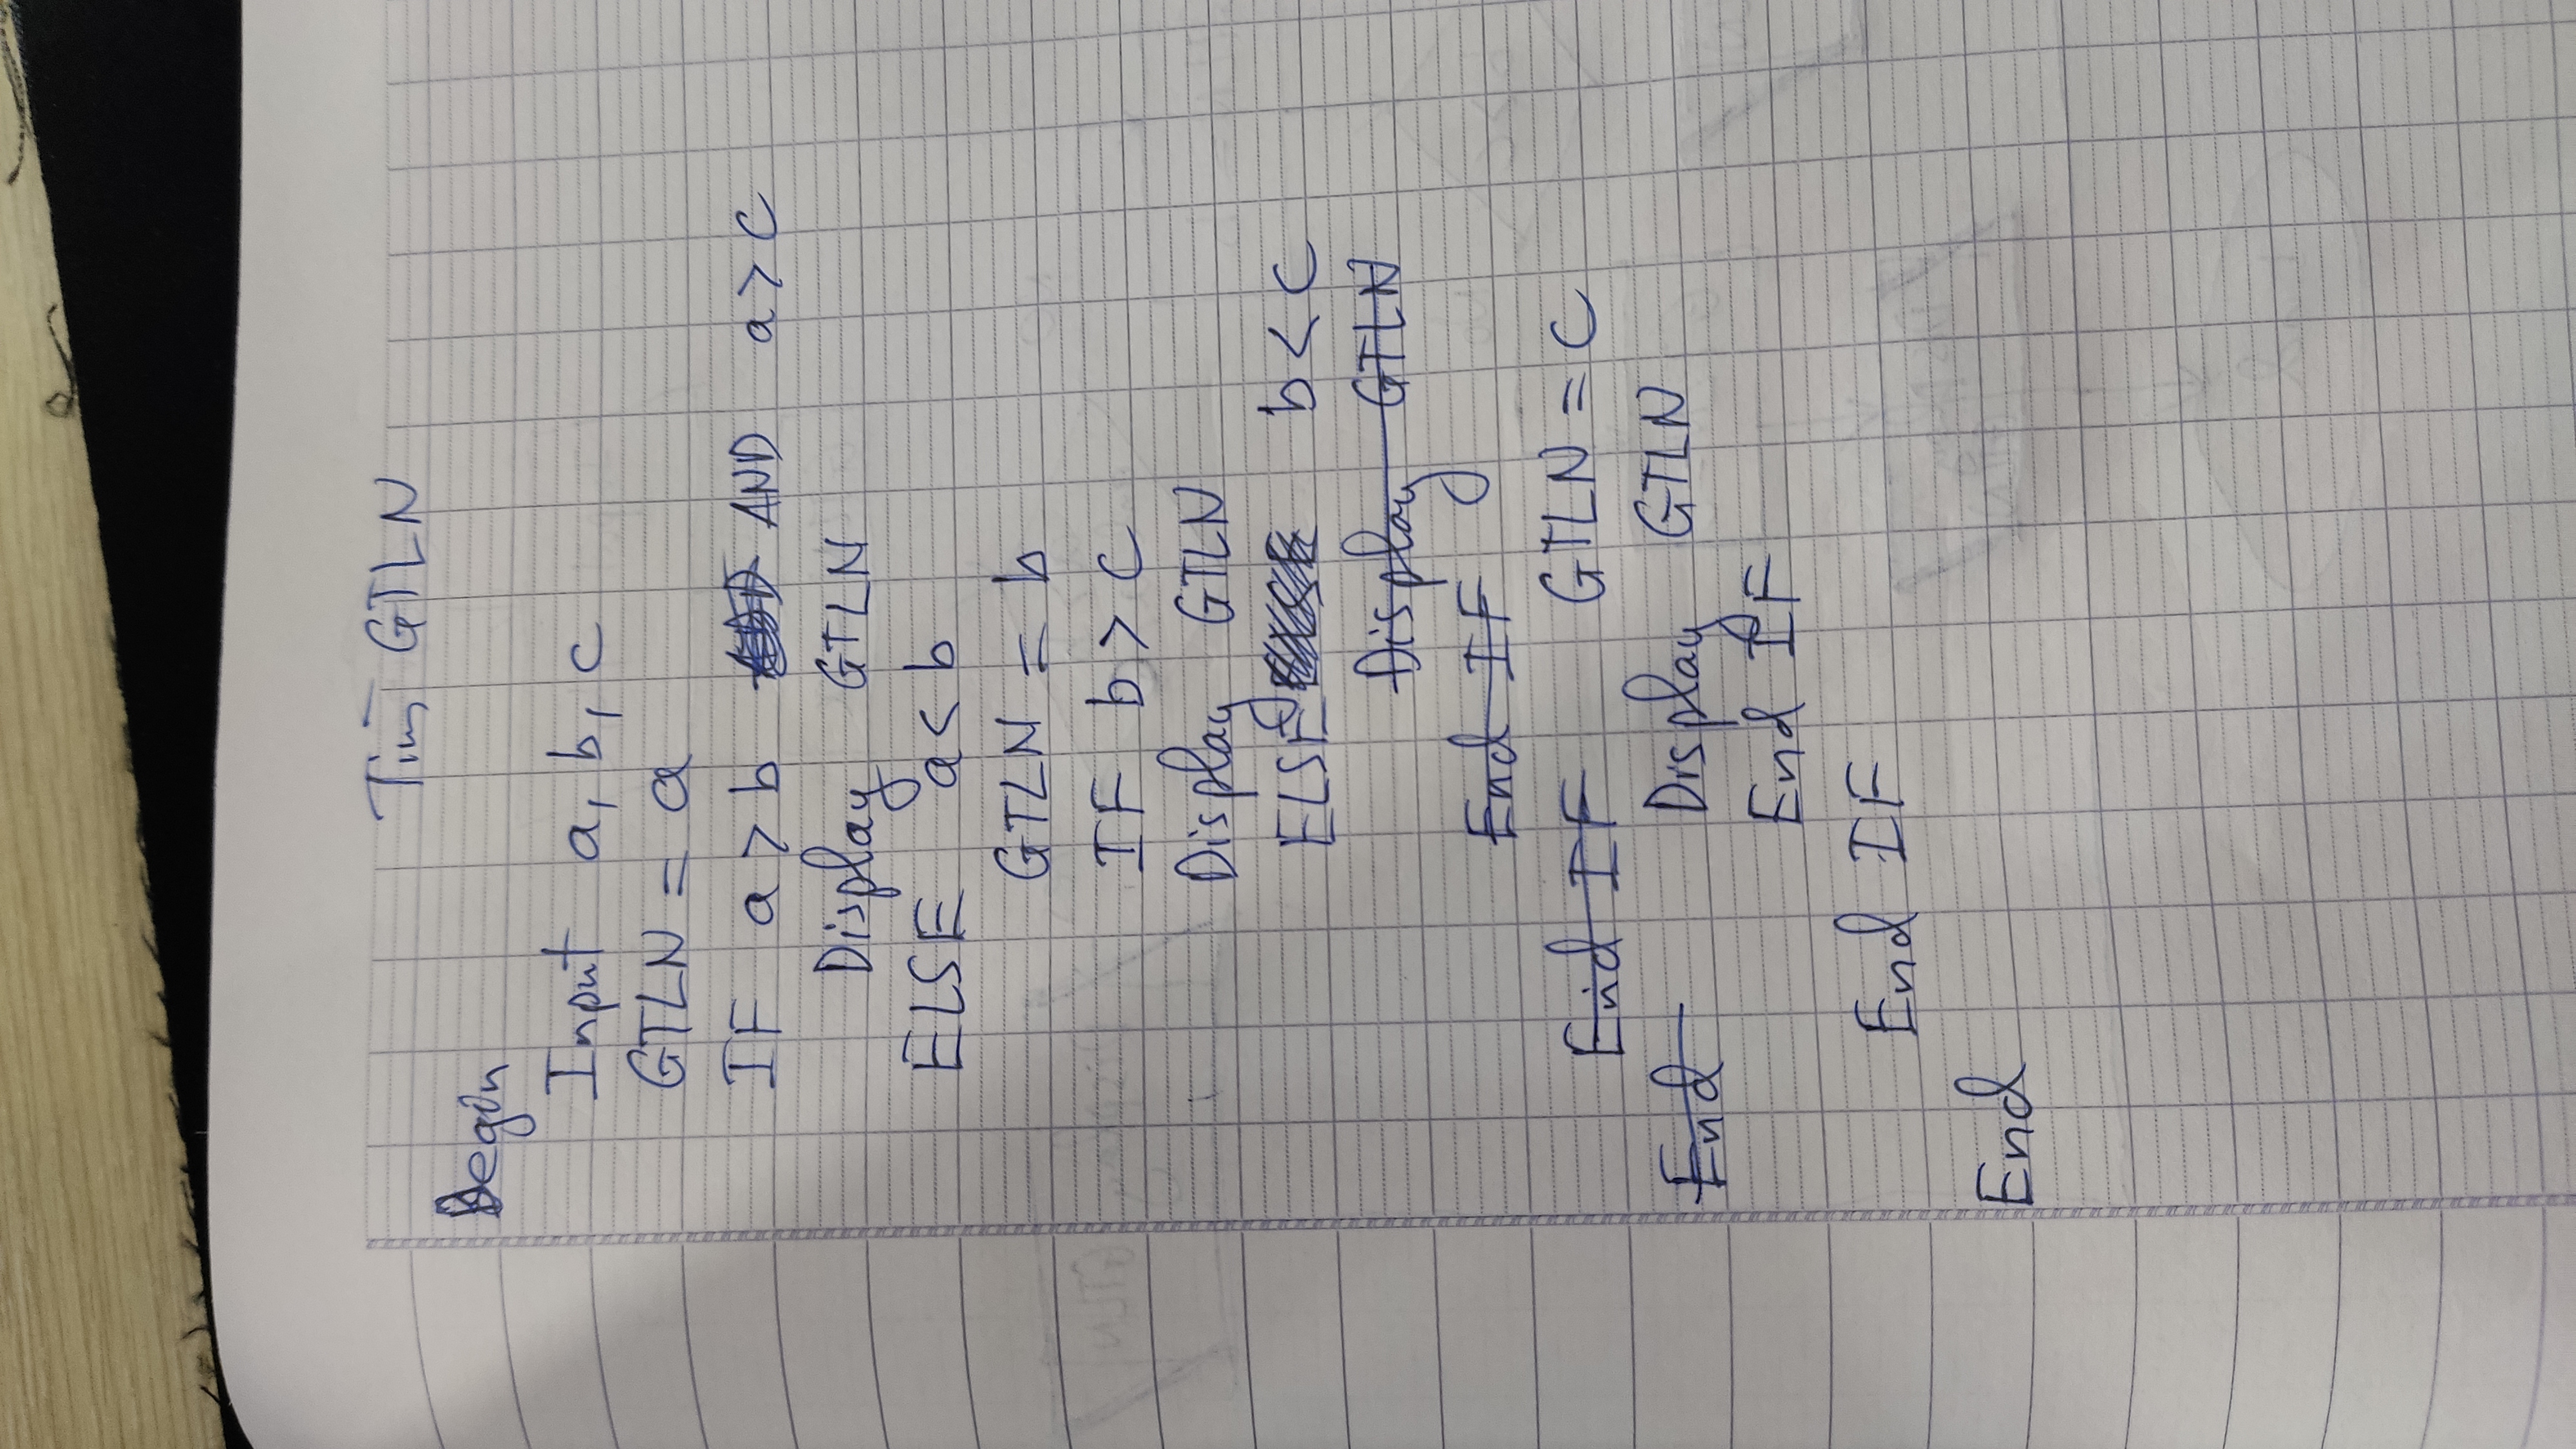 Tìm GTLN
Begin
Input a, b, c
GTLN = a
IF a > b AND a > c
Display GTLN
ELSE a < b
GTLN = b
IF b > c
Display GTLN
ELSE b < c
Display GTLN
End IF
End IF GTLN = c
End Display GTLN
End IF
End IF
End